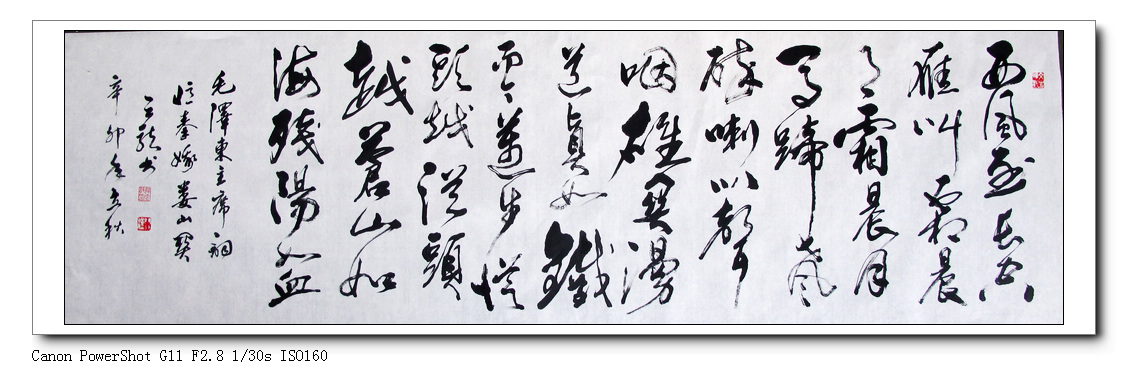 西風烈長空
雁叫霜晨
月霜晨月
馬蹄聲
碎喇叭聲
咽雄關漫
道真如鐵
而今邁步從
頭越從頭
越蒼山如
海殘陽如血
毛澤東主席詞
憶秦娥婁山關
书
辛卯年秋
Canon PowerShot G11 F2.8 1/30s ISO160